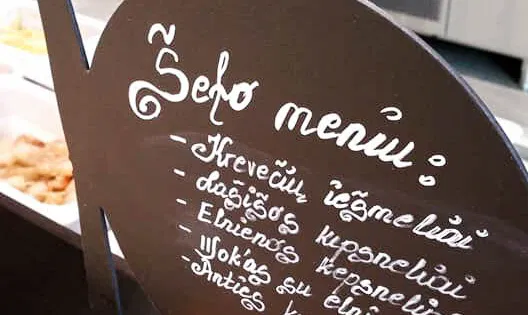 Šefo meniu:
- Krevečių iešmeliai
- Lašišos kepsneliai
- Elnienos kepsneliai
- Wok'as su elni
- Anties k